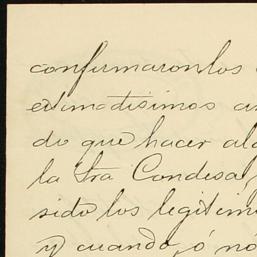 confirmaron los
estimadisimos a
do que hacer al
la Sra Condesa,
sido los legitim
y cuando, ó nó